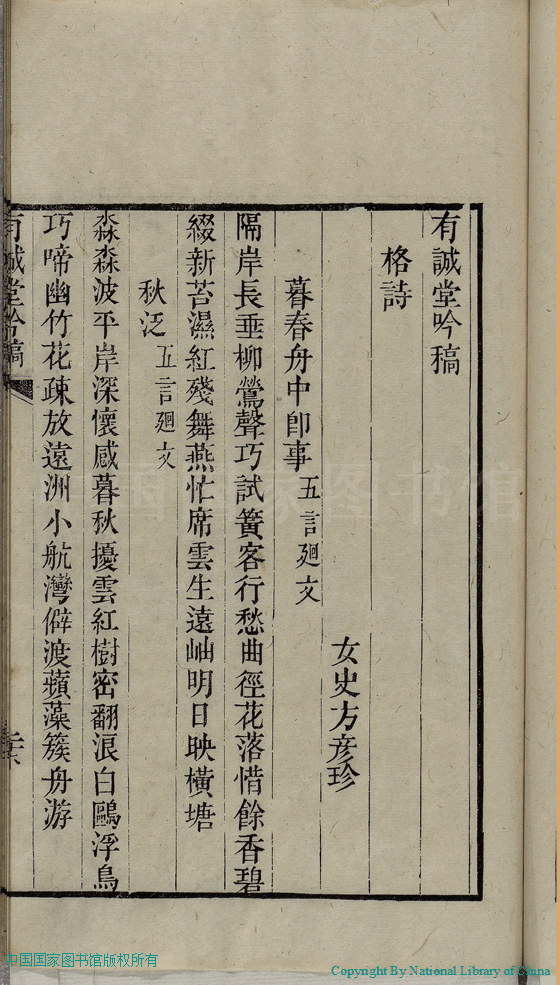 有誠堂吟稿
格詩
女史方彥珍
暮春舟中卽事 五言廻文
隔岸長垂柳鶯聲巧試簧客行愁曲徑花落惜餘香碧
綴新苔濕紅殘舞燕忙席雲生遠岫明日映橫塘
秋泛 五言廻文
淼淼波平岸深懷感暮秋擾雲紅樹密翻浪白鷗浮鳥
巧啼幽竹花疎放遠洲小航灣僻渡蘋藻簇舟游
有誠堂吟稿
中国国家图书馆版权所有
Copyright By National Library of China